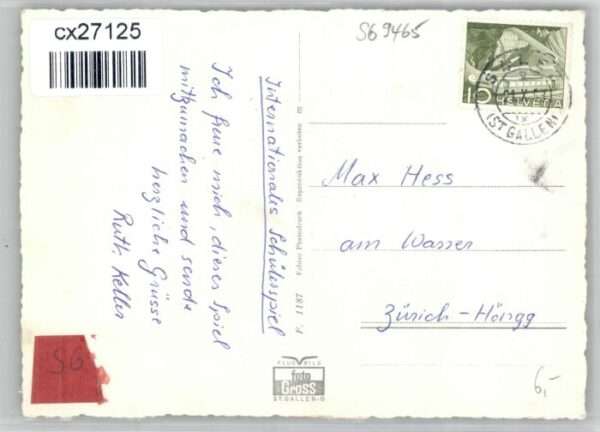 cx27125
SG 9465
10 HELVETIA
(ST. GALLEN)
Internationales Schülerspiel
Ich freue mich, dieses Spiel
mitzumachen und sende
herzliche Grüsse
Ruth Keller
Max Hess
am Wasser
Zürich-Höngg
1187 Fabco Photodruck Reproduktion verboten
SG
FLUGBILD
foto
Gross
ST. GALLEN-O
6,-